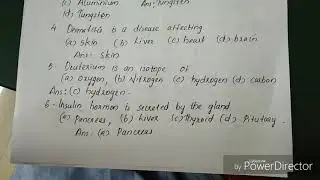 (c) Aluminium Ans: Tungsten
(d) Tungston
4 Dematitis is a disease affecting
(a) skin (b) Liver (c) heart (d) brain
Ans: skin
5 Deuterium is an isotope of
(a) oxygen, (b) Nitrogen (c) hydrogen (d) carbon
Ans: (c) hydrogen.
6 - Insulin hormon is secreted by the gland
(a) Pancreas, (b) Liver (c) Thyroid (d) Pitutary.
Ans: (a) Pancreas
PowerDirector